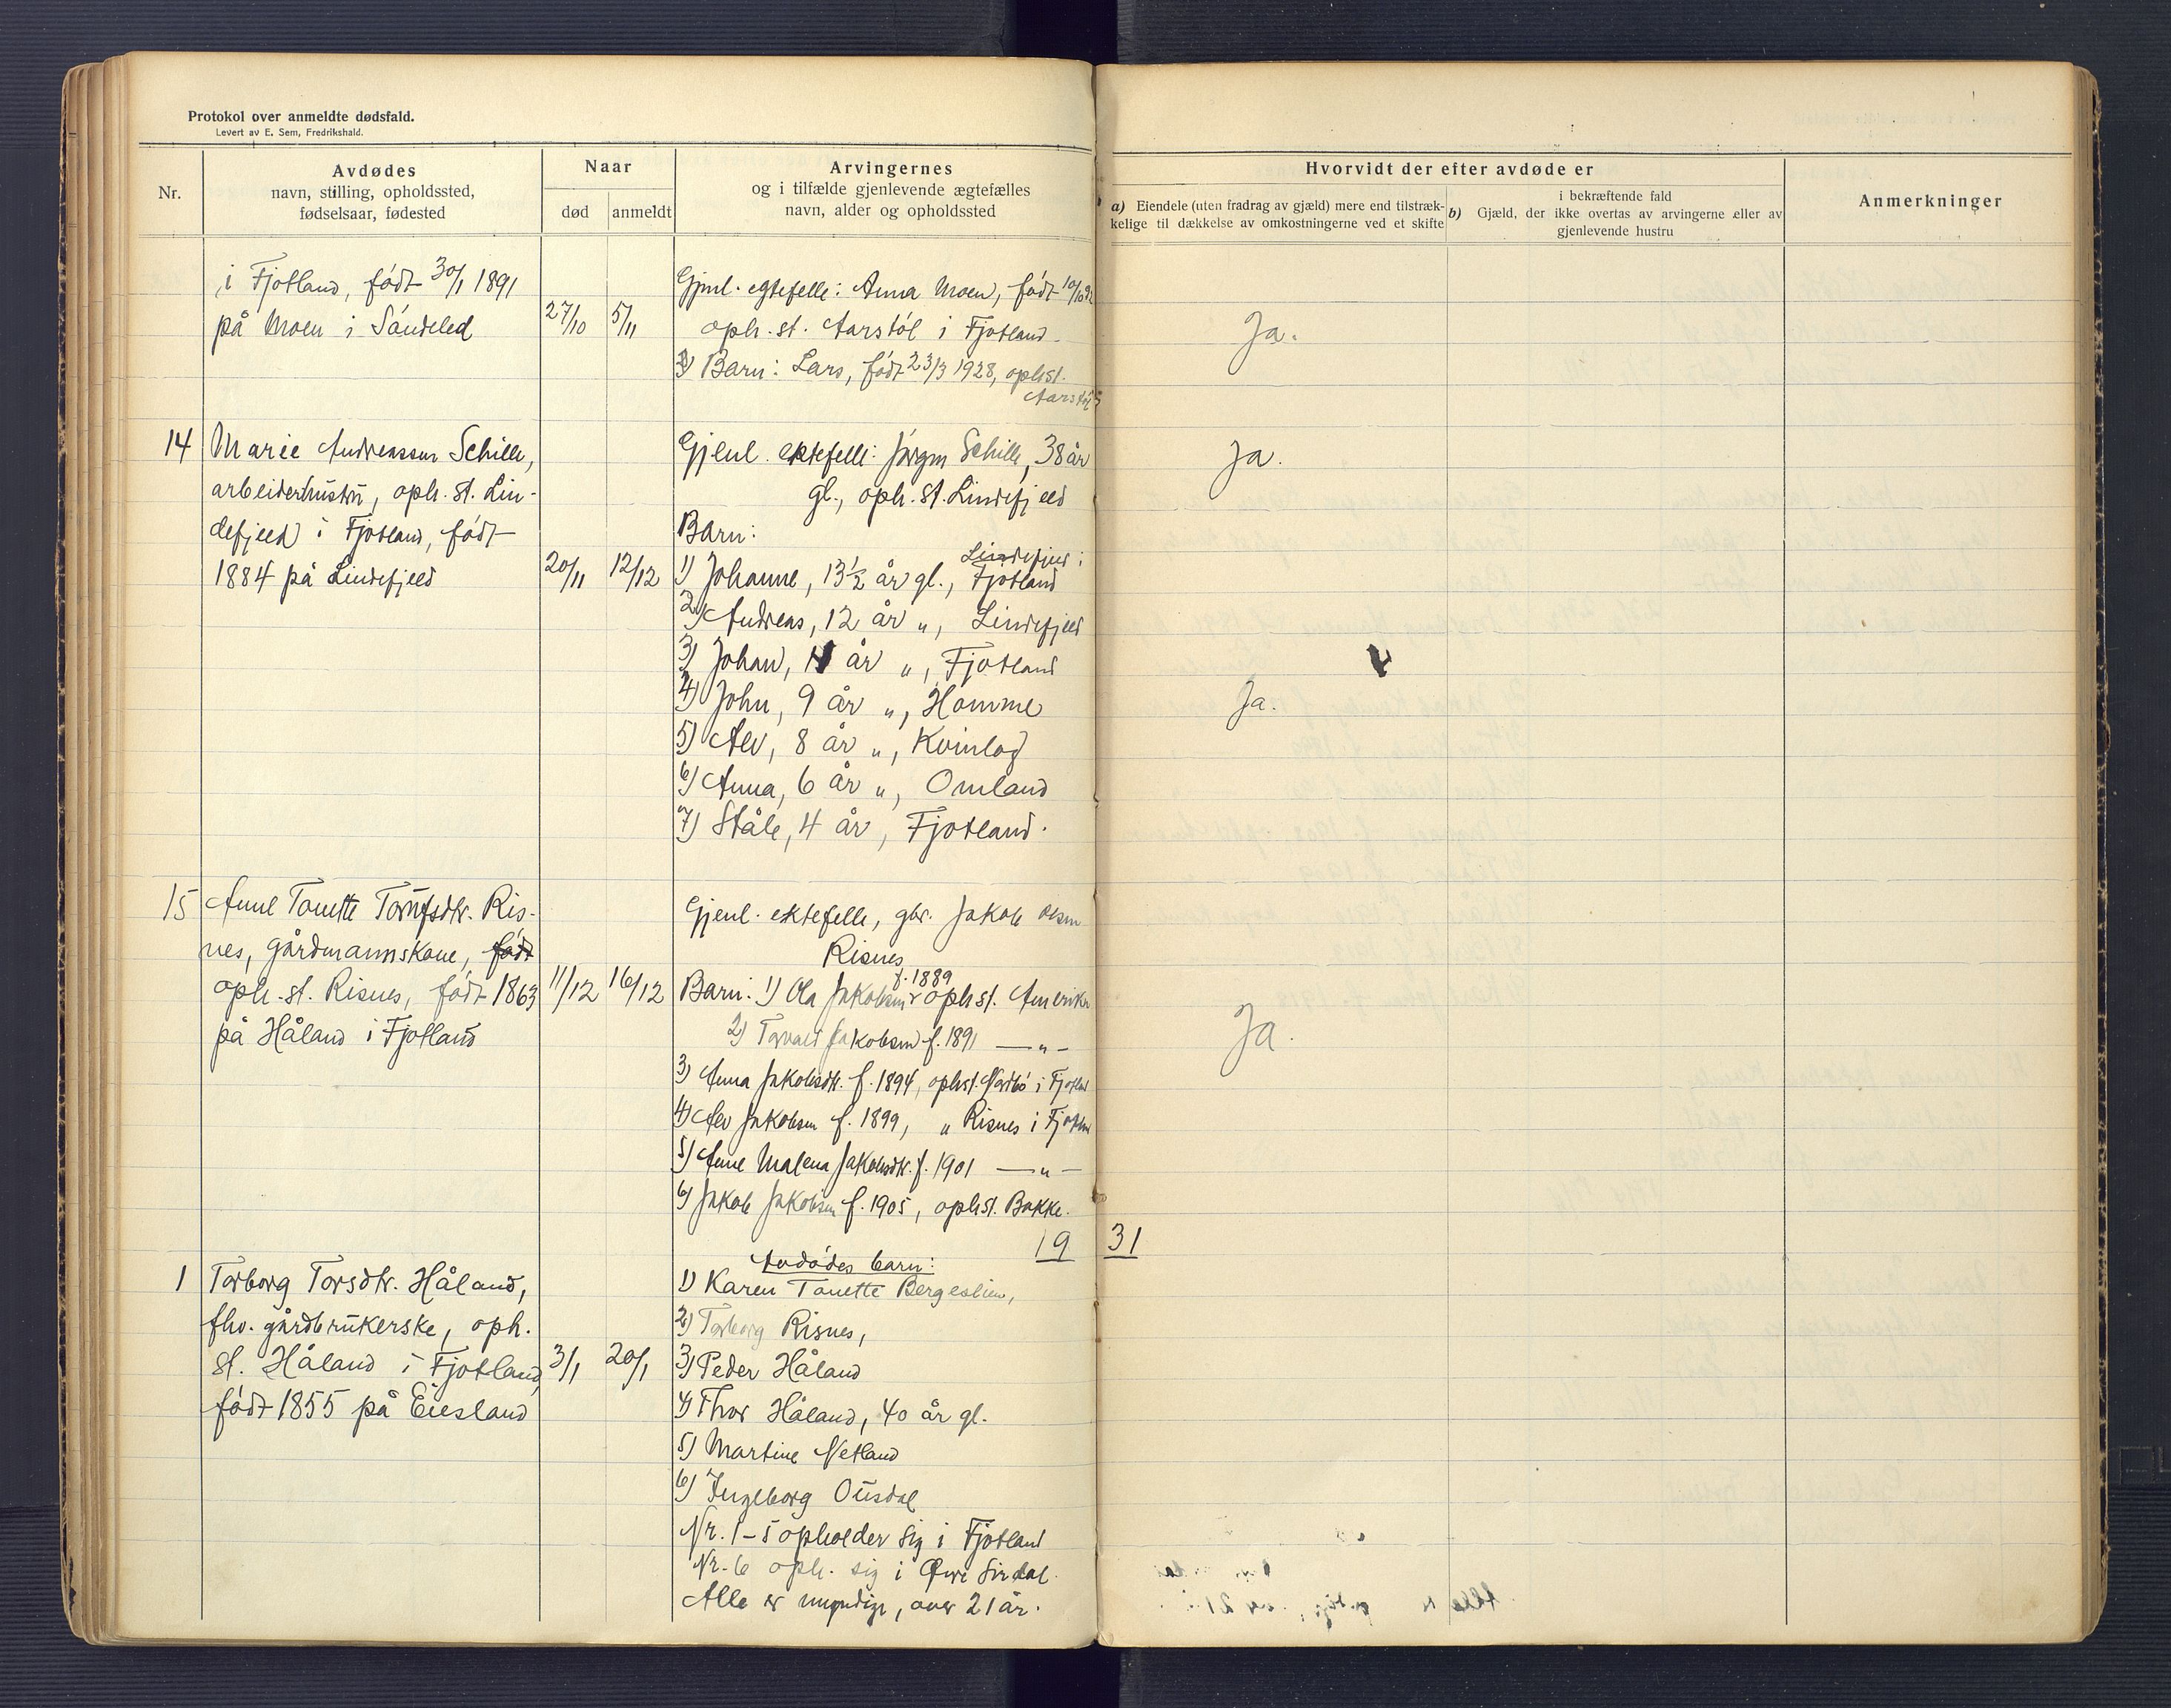 Protokol over anmeldte dødsfald.
Levert av E. Sem, Fredrikshald.
Nr.
Avdødes
navn, stilling, opholdssted,
fødselsaar, fødested
Naar
død
anmeldt
Arvingernes
og i tilfælde gjenlevende ægtefælles
navn, alder og opholdssted
Hvorvidt der efter avdøde er
a) Eiendele (uten fradrag av gjæld) mere end tilstræk-
kelige til dækkelse av omkostningerne ved et skifte
b) Gjæld, der
i bekræftende fald
ikke overtas av arvingerne eller av
gjenlevende hustru
Anmerkninger
i Fjotland, født 30/1 1891
på Moen i Søndeled
27/10
5/11
Gjenl. egtefelle: Anna Moen, født 10/10
oph. st. Aarstøl i Fjotland
Barn: Lars, født 23/3 1928, ophst.
Aarstøl
Ja.
14
Marie Andreassen Schille,
arbeiderhustru, oph. st. Lin-
defjeld i Fjotland, født
1884 på Lindefjeld
20/11
12/12
Gjenl. ektefelle: Jørgen Schille, 38 år
gl., oph. st. Lindefjeld
Barn:
1) Johanne, 13½ år gl., Lindefjeld i
Fjotland
2) Andreas, 12 år „, Lindefjeld
3) Johan, 11 år „, Fjotland
4) John, 9 år „, Homme
5) Alv, 8 år „, Kvinlog
6) Anna, 6 år „, Omland
7) Ståle, 4 år, Fjotland.
Ja.
Ja.
15
Anne Tonette Torufsdtr. Ris-
nes, gårdmannskone, født
oph. st. Risnes, født 1863
på Håland i Fjotland
11/12
16/12
Gjenl. ektefelle, gbr. Jakob Olsen
Risnes
Barn: 1) Ola Jakobsen f. 1889 ophst. Amerika
2) Torvald Jakobsen f. 1891 —„—
3) Anna Jakobsdtr. f. 1894, ophst. Nordbø i Fjotland
4) Alv Jakobsen f. 1899, „ Risnes i Fjotland
5) Anne Malena Jakobsdtr. f. 1901 —„—
6) Jakob Jakobsen f. 1905, ophst. Bakke.
Ja.
19 31
1
Torborg Torsdtr. Håland,
fhv. gårdbrukerske, oph.
st. Håland i Fjotland,
født 1855 på Eiesland
3/1
20/1
Avdødes barn:
1) Karen Tonette Bergeslien,
2) Torborg Risnes,
3) Peder Håland
4) Thor Håland, 40 år gl.
5) Martine Netland
6) Ingeborg Ousdal
Nr. 1–5 opholder sig i Fjotland
Nr. 6 oph. sig i Øvre Sirdal.
Alle er myndige, over 21 år.